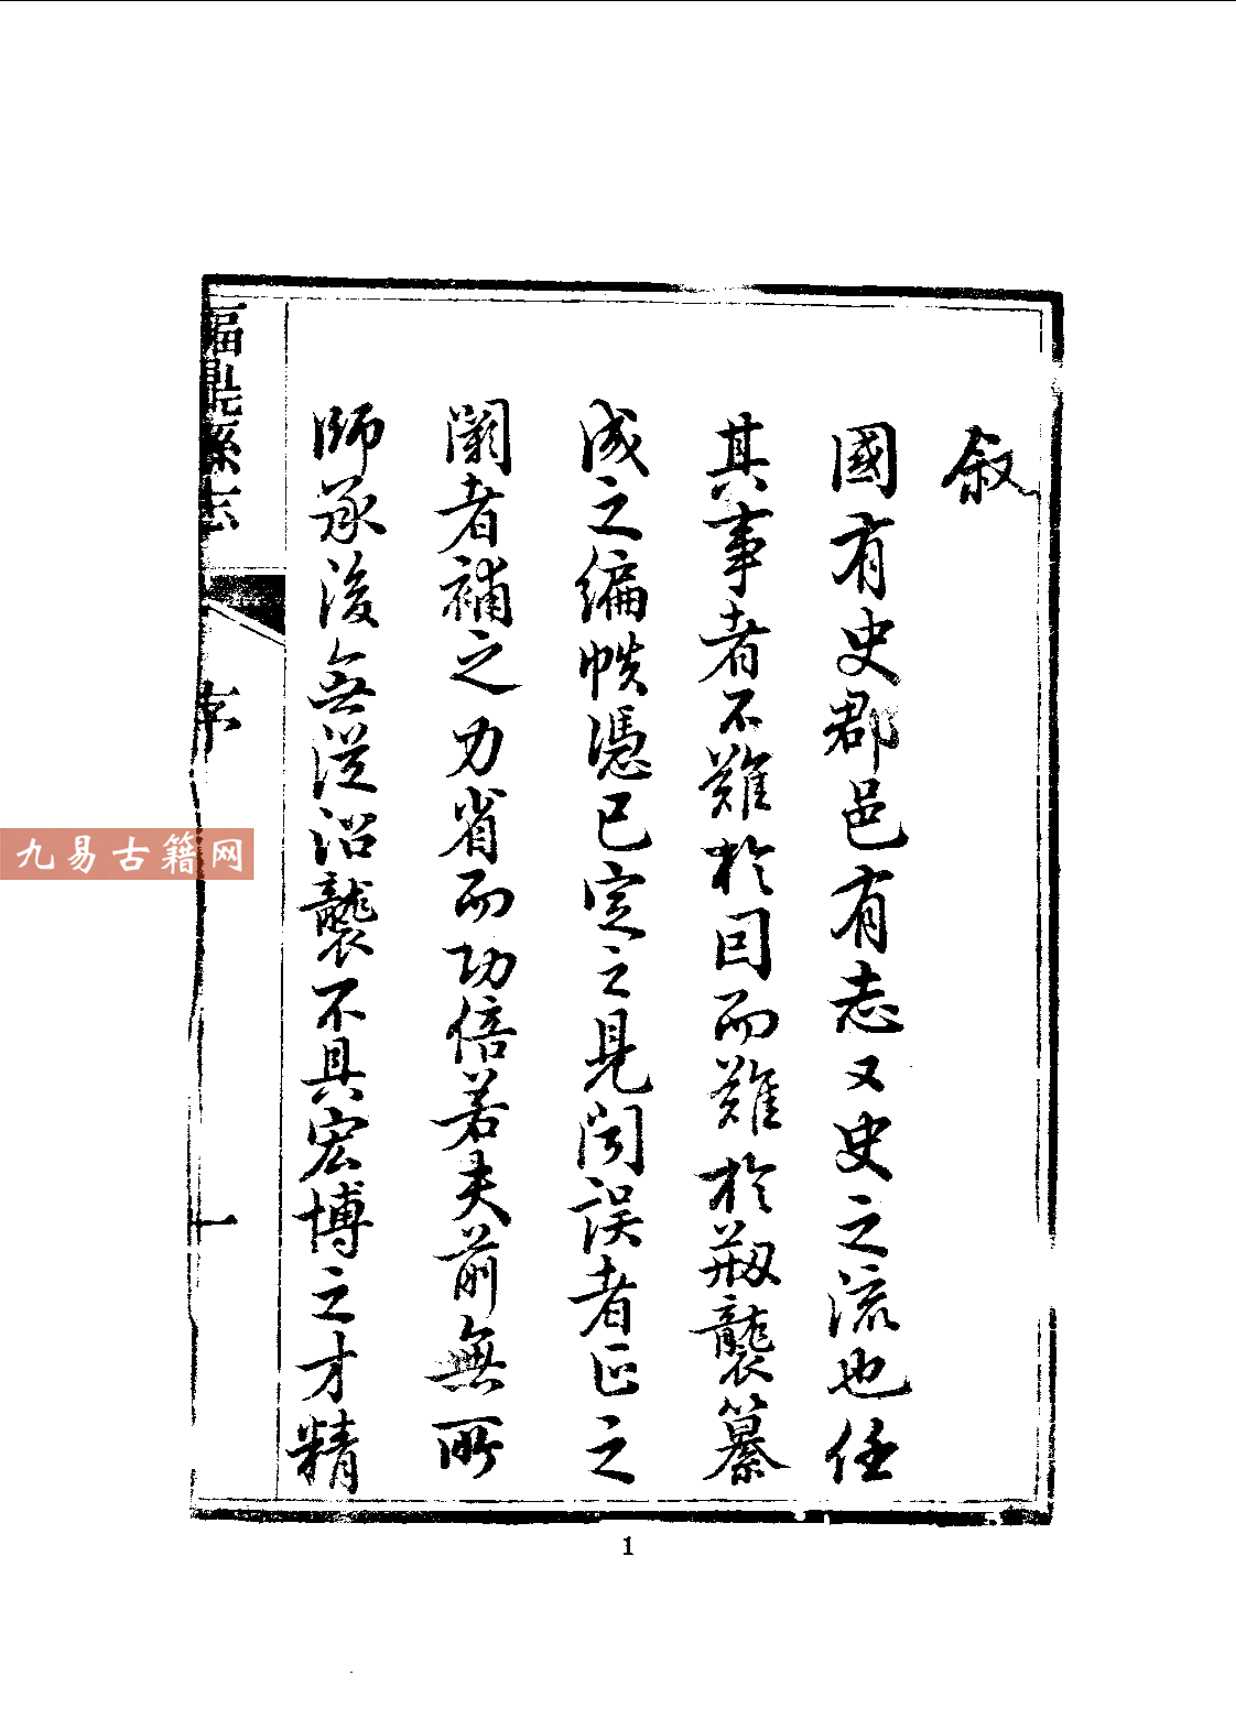 叙
國有史郡邑有志又史之流也任
其事者不難於因而難於剏襲纂
成之編帙憑已定之見聞誤者正之
闕者補之力省而功倍若夫前無所
師承後無從沿襲不具宏博之才精
福鼎縣志
序
一
九易古籍网
1